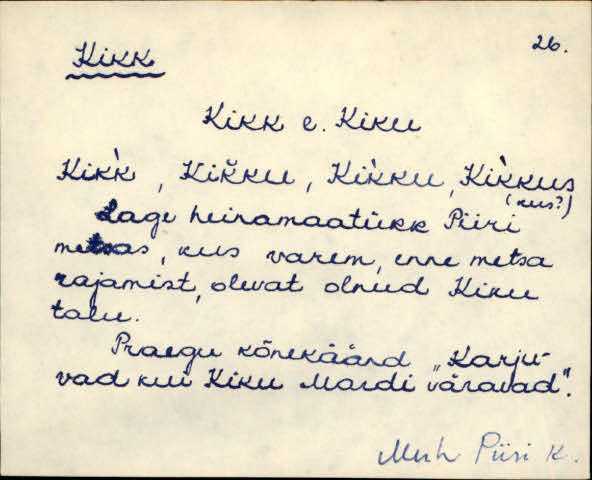 Kikk
26.
Kikk e. Kiku
Kik̀k, Kik̆ku, Kik̀ku, Kik̀kus
(kus?)
Lage heinamaatükk Piiri
metsas, kus varem, enne metsa
rajamist, olevat olnud Kiku
talu.
Praegu kõnekäänd „Karju-
vad kui Kiku Mardi väravad".
Mush Piiri k.